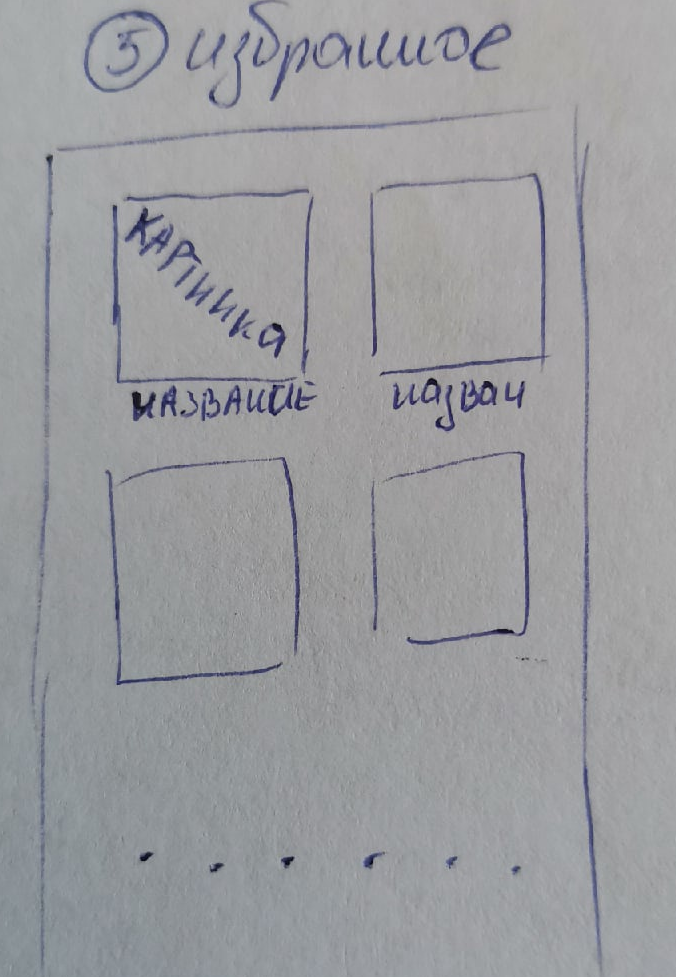 5 избранное
КАРТИНКА
НАЗВАНИЕ назван